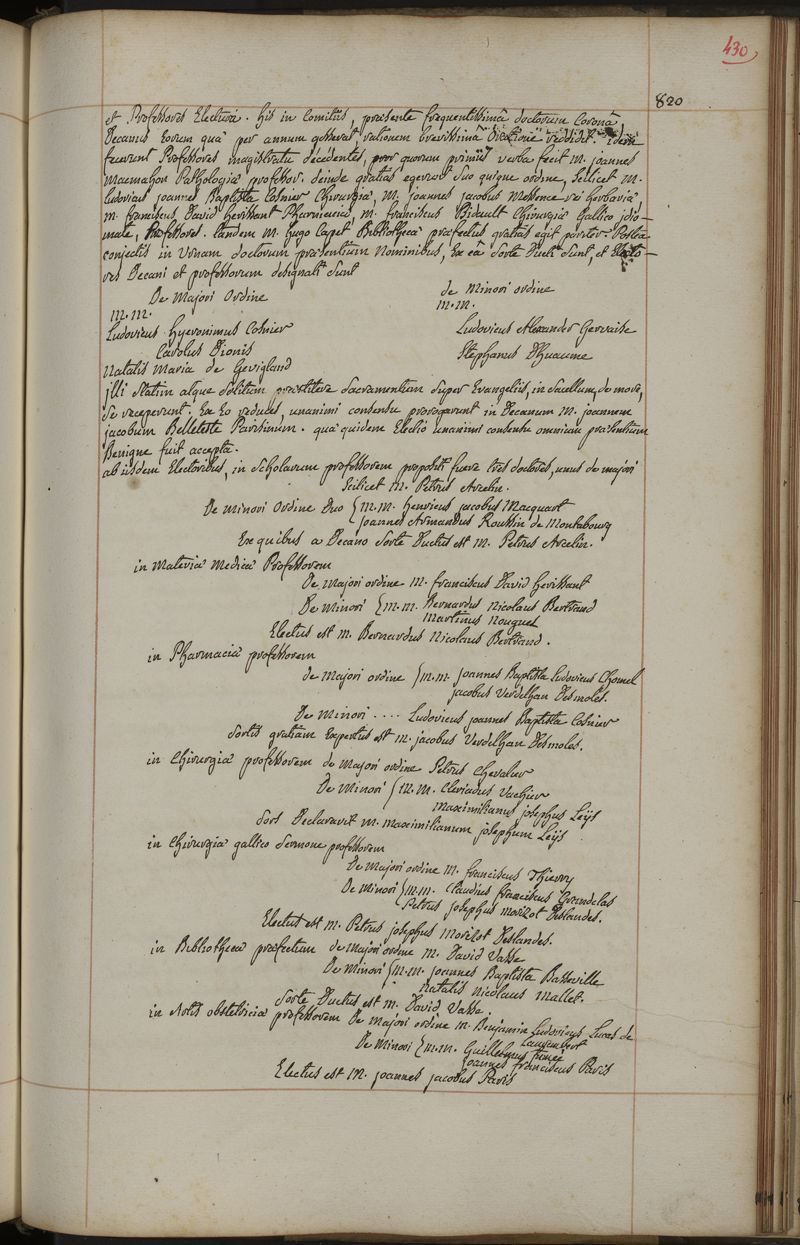 430
820
et Professores Electuri. His in Comitiis, praesente frequentissimâ doctorum Coronâ,
Decanus Eorum qua per annum gesserat, rationem brevissimâ Oratione reddidit. idem
fecerunt Professores magistratu decedentes, pro quorum primus verba fecit M. joannes
Macmahon Pathologiae professor. deinde gratias egerunt suo quique ordine, Scilicet M.
Ludovicus joannes Baptista Cosnier Chirurgiae, M. joannes jacobus Messence rei herbariae,
M. franciscus David herissant Pharmaciae, M. franciscus Bidault Chirurgiae Gallico idio-
mate, Professores. tandem M. hugo Capet Bibliothecae praefectus gratias egit pariter. Postea
conjectis in Urnam doctorum praesentium Nominibus, Ex eâ Sorte Ducti Sunt, et Electo-
res Decani et professorum designati Sunt
De Majori Ordine
de Minori ordine
M.M.
M.M.
Ludovicus hyeronimus Cosnier
Ludovicus Alexander Gervaise
Carolus Dionis
Stephanus Dhuaume
Natalis Maria de Gevigland
illi Statim atque Solitum praestitere Sacramentum Super Evangeliis, in Sacellum, de more,
Se receperunt. Ex Eo reduces, unanimi consensu prorogarunt in Decanum M. joannem
jacobum Belleteste Parisinum. qua quidem Electio unanimi consensu omnium praesentium
Benigne fuit accepta.
ab iisdem Electoribus, in Scholarum professorem propositi fuere tres doctores, unus de majori
Scilicet M. Petrus Arcelin.
De minori Ordine Duo { M.M. henricus jacobus Macquart
joannes Armandus Roussin de Montabourg
Ex quibus a Decano Sorte Ductus est M. Petrus Arcelin.
in Materiae Medicae Professorem
De Majori ordine M. franciscus David herissant
De Minori { M.M. Bernardus Nicolaus Bertrand
Martinus Nouguez
Electus est M. Bernardus Nicolaus Bertrand.
in Pharmaciae professorem
de majori ordine { M.M. joannes Baptista Ludovicus Chomel
jacobus Verdelhan Desmoles.
De Minori .... Ludovicus joannes Baptista Cosnier
Sortis gratiam Expertus est M. jacobus Verdelhan Desmoles.
in Chirurgiae professorem de majori ordine Petrus Chevalier
De Minori { M.M. Cleriadus Vachier
Maximilianus josephus Leys
Sors Declaravit M. Maximilianum josephum Leys
in Chirurgiae gallico Sermone professorem
De Majori ordine M. franciscus Thierry
De Minori { M.M. Claudius franciscus Grandclas
Petrus josephus Morizot Deslandes.
Electus est M. Petrus josephus Morizot Deslandes.
in Bibliothecae praefectum de Majori ordine M. David Vasse
De Minori { M.M. joannes Baptista Basseville
Natalis Nicolaus Mallet.
Sorte Ductus est M. David Vasse.
in Artis obstetriciae professorem De Majori ordine M. Benjamin Ludovicus Lucas de
Laugembert
De Minori { M.M. Guillelmus
joannes franciscus Paris
Electus est M. joannes jacobus Paris